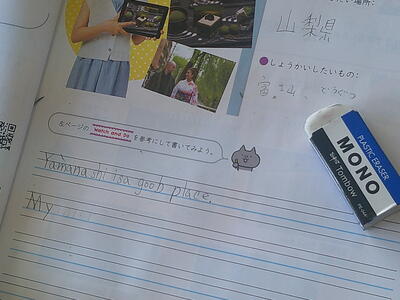 山梨県
しょうかいしたいもの:
富士山、どうぐつ
左ページの Watch and Do を参考にして書いてみよう。
Yamanashi isa gooh place.
My
PLASTIC ERASER
MONO
Tombow